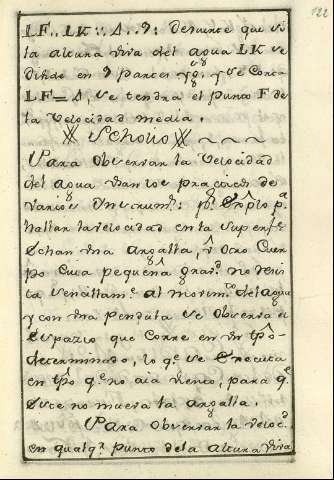 122
LF..LK :: 4..9: Desuerte que si
la altura viva del agua LK se
divide en 9 partes yg.s, y se Corta
LF=4, se tendra el punto F de
la Velocidad media.
Scholio
Para Observar la Velocidad
del agua van los practicos de
varios Instrum.s: p.r Explo p.a
hallar la velocidad en la superf.e
Echan vna argalla, ù Otro Cuer
po Cuia pequeña grav.d no resis
ta sensillam.e al movim.to del agua
y con vna pendula se Observa el
Espazio que Corre en vn tpõ
determinado, lo q.e se Executa
en tpõ q.e no aia viento, para q.e
Este no mueva la argalla.
Para Observar la veloc.d
en qualq.r punto de la altura viva